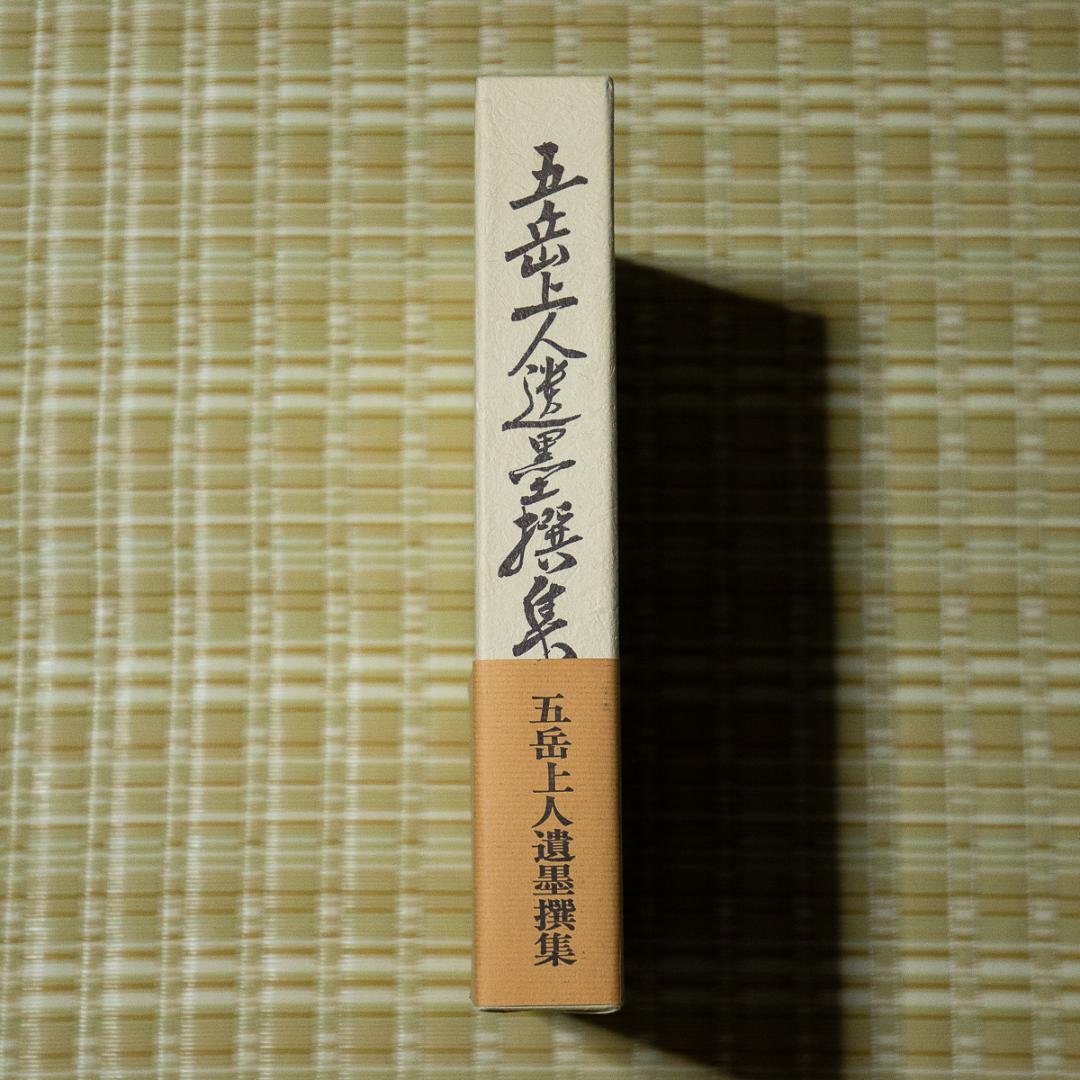 五岳上人遺墨撰集
五岳上人遺墨撰集